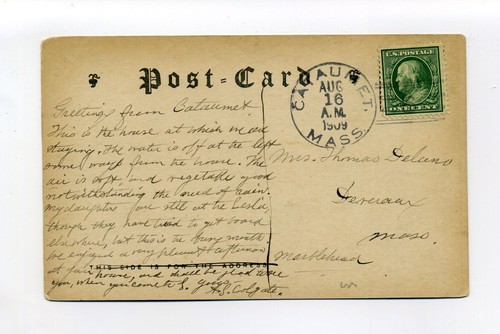 Post-Card
CATAUMET.
AUG
16
A.M.
1909
MASS.
U.S. POSTAGE
ONE CENT
Greetings from Cataumet
This is the house at which we are
staying. The water is off at the left
some ways from the house. The
air is soft, and vegetable good
notwithstanding the need of rain.
My daughters are still at the
though they have tried to get board
elsewhere, but this is the busy month
We enjoyed a very pleasant afternoon
at your house, and shall be glad to see
you, when you come to S.
A.S. Colgate.
THIS SIDE IS FOR THE ADDRESS
Mrs. Thomas Delano
Devereux
Mass.
Marblehead